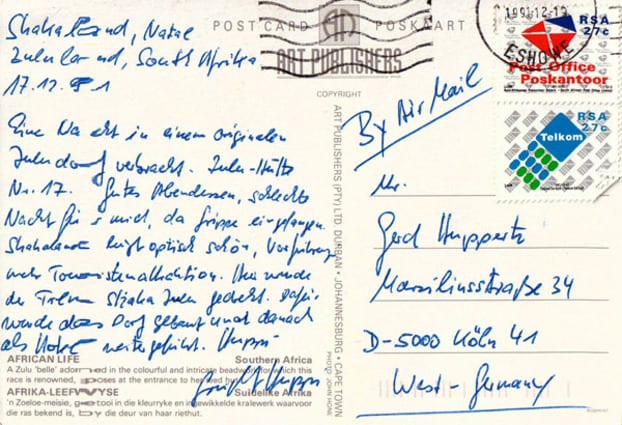 Shakaland, Natal
Zululand, South Afrika
17.12.91
Eine Nacht in einem originalen
Zuludorf verbracht. Zulu-Hütte
Nr. 17. Gutes Abendessen, schlechte
Nacht für mich, da Grippe eingefangen.
Shakaland optisch schön, Vorführung
mehr Touristenattraktion. Hier wurde
der Film Shaka Zulu gedreht. Dafür
wurde das Dorf gebaut und danach
als Hotel weitergeführt.
POST CARD
POSKAART
ART PUBLISHERS
COPYRIGHT
ART PUBLISHERS (PTY) LTD DURBAN • JOHANNESBURG • CAPE TOWN
PHOTO: JOHN HONE
1991-12-19
ESHOWE
RSA
27c
Post Office
Poskantoor
RSA
27c
Telkom
By Air Mail
Mr.
Gerd Huppertz
Marsiliusstraße 34
D-5000 Köln 41
West-Germany
AFRICAN LIFE
Southern Africa
A Zulu 'belle' adorned in the colourful and intricate beadwork for which this
race is renowned, poses at the entrance to her reed hut.
AFRIKA-LEEFWYSE
Suidelike Afrika
'n Zoeloe-meisie, getooi in die kleurryke en ingewikkelde kralewerk waarvoor
die ras bekend is, by die deur van haar riethut.